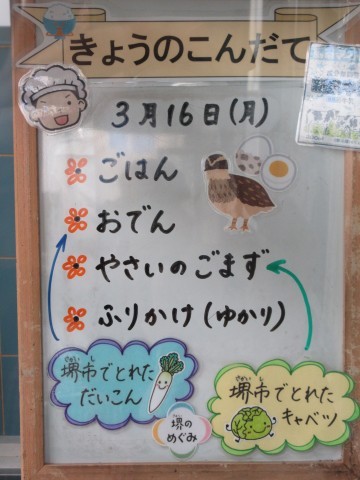 きょうのこんだて
3月16日(月)
ごはん
おでん
やさいのごまず
ふりかけ(ゆかり)
堺市でとれた
だいこん
堺のめぐみ
堺市でとれた
キャベツ